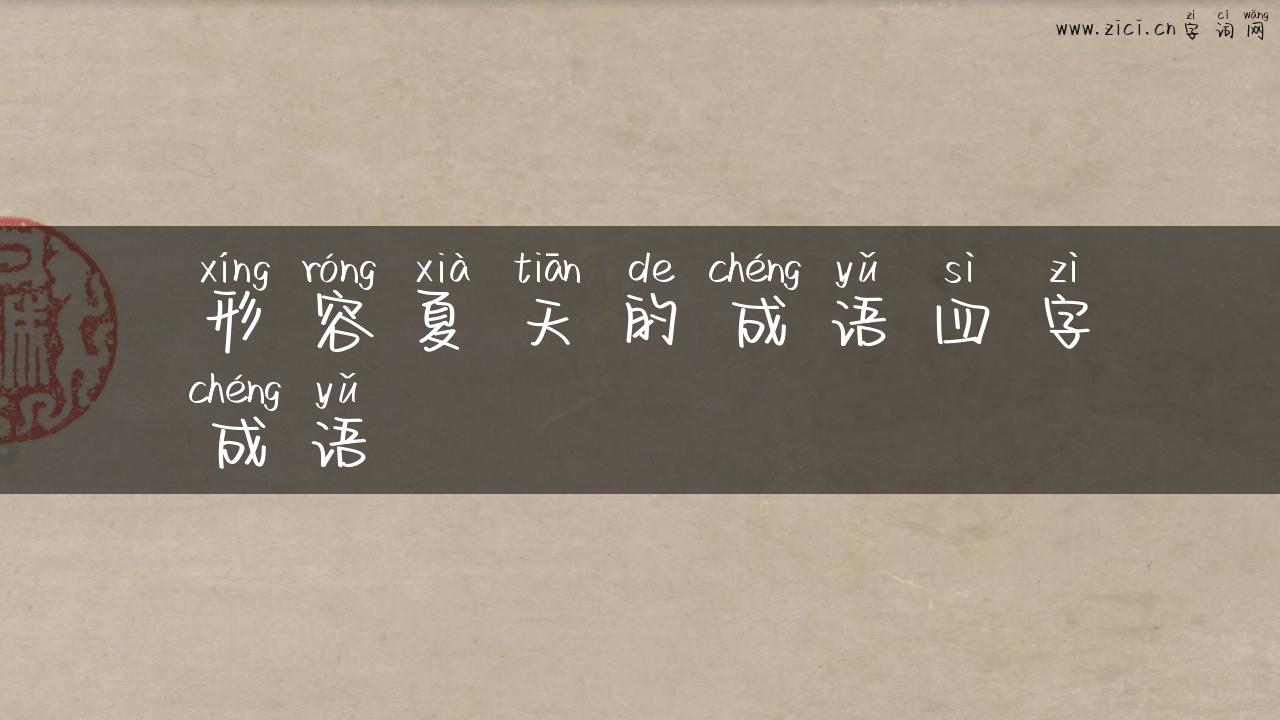 zì cí wǎng
www.zici.cn字词网
xíng róng xià tiān de chéng yǔ sì zì
形容夏天的成语四字
chéng yǔ
成语